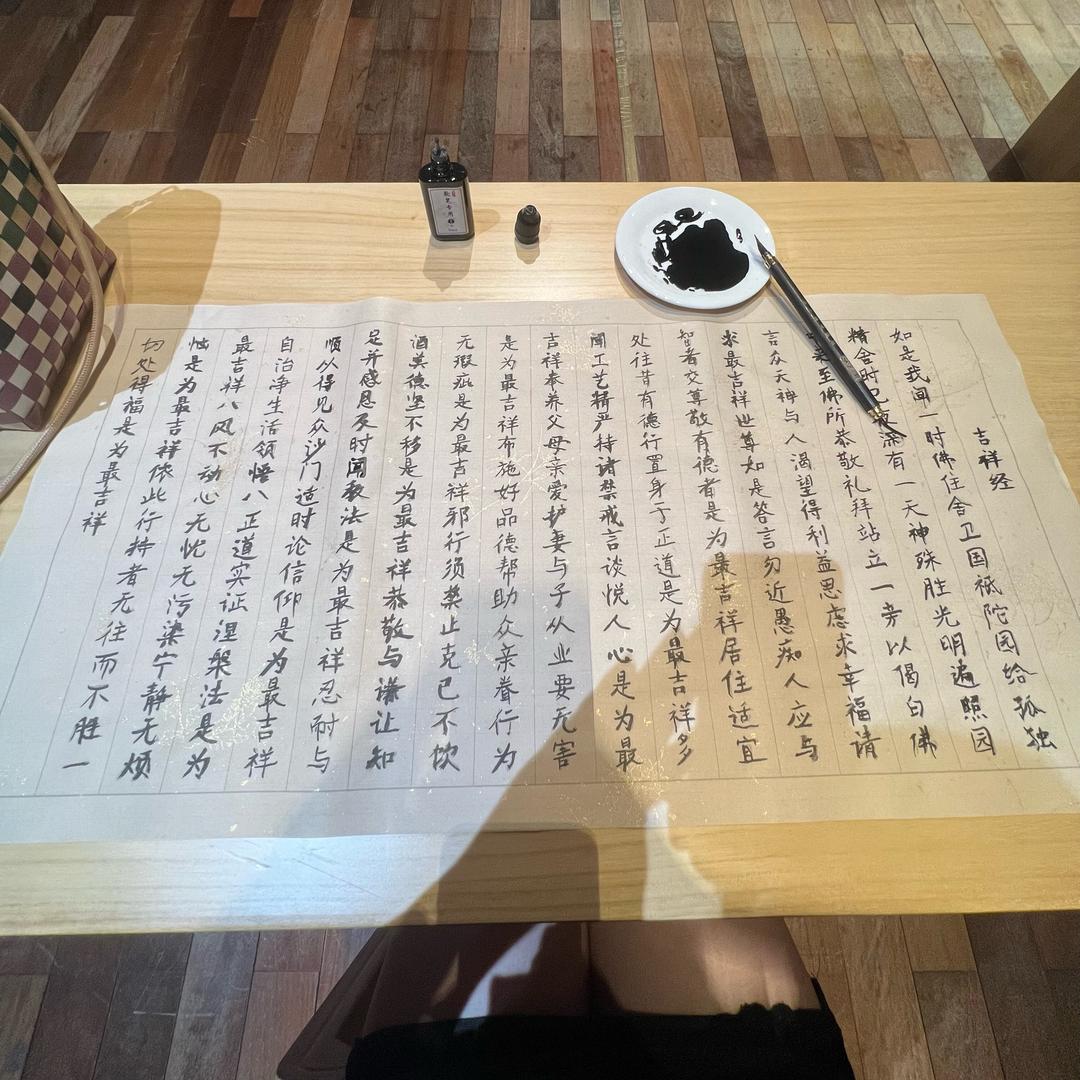 吉祥经
如是我闻一时佛住舍卫国祇陀园给孤独
精舍时已夜深有一天神殊胜光明遍照园
来至佛所恭敬礼拜站立一旁以偈白佛
言众天神与人渴望得利益思虑求幸福请
求最吉祥世尊如是答言勿近愚痴人应与
智者交尊敬有德者是为最吉祥居住适宜
处往昔有德行置身于正道是为最吉祥多
闻工艺精严持诸禁戒言谈悦人心是为最
吉祥奉养父母亲爱护妻与子从业要无害
是为最吉祥布施好品德帮助众亲眷行为
无瑕疵是为最吉祥邪行须禁止克己不饮
酒美德坚不移是为最吉祥恭敬与谦让知
足并感恩及时闻教法是为最吉祥忍耐与
顺从得见众沙门适时论信仰是为最吉祥
自治净生活领悟八正道实证涅槃法是为
最吉祥八风不动心无忧无污染宁静无烦
恼是为最吉祥依此行持者无往而不胜一
切处得福是为最吉祥
软笔专用